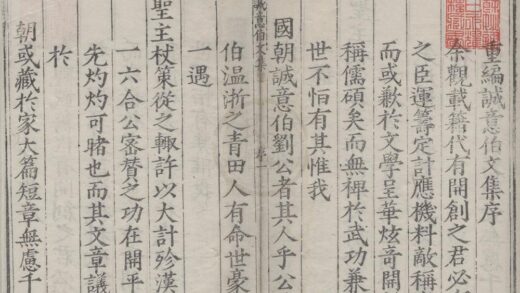 重編誠意伯文集序
余觀載籍代有開創之君必
之臣運籌定計應機料敵稱
而或歉於文學呈華炫奇開
稱儒碩矣而無裨於武功兼
世不恒有其惟我
國朝誠意伯劉公者其人乎公
誠意伯文集 序一
伯温浙之青田人有命世豪
一遇
聖主杖策從之輙許以大計殄漢
一六合公密賛之功在開平
先灼灼可睹也而其文章議
於
朝或藏於家大篇短章無慮千